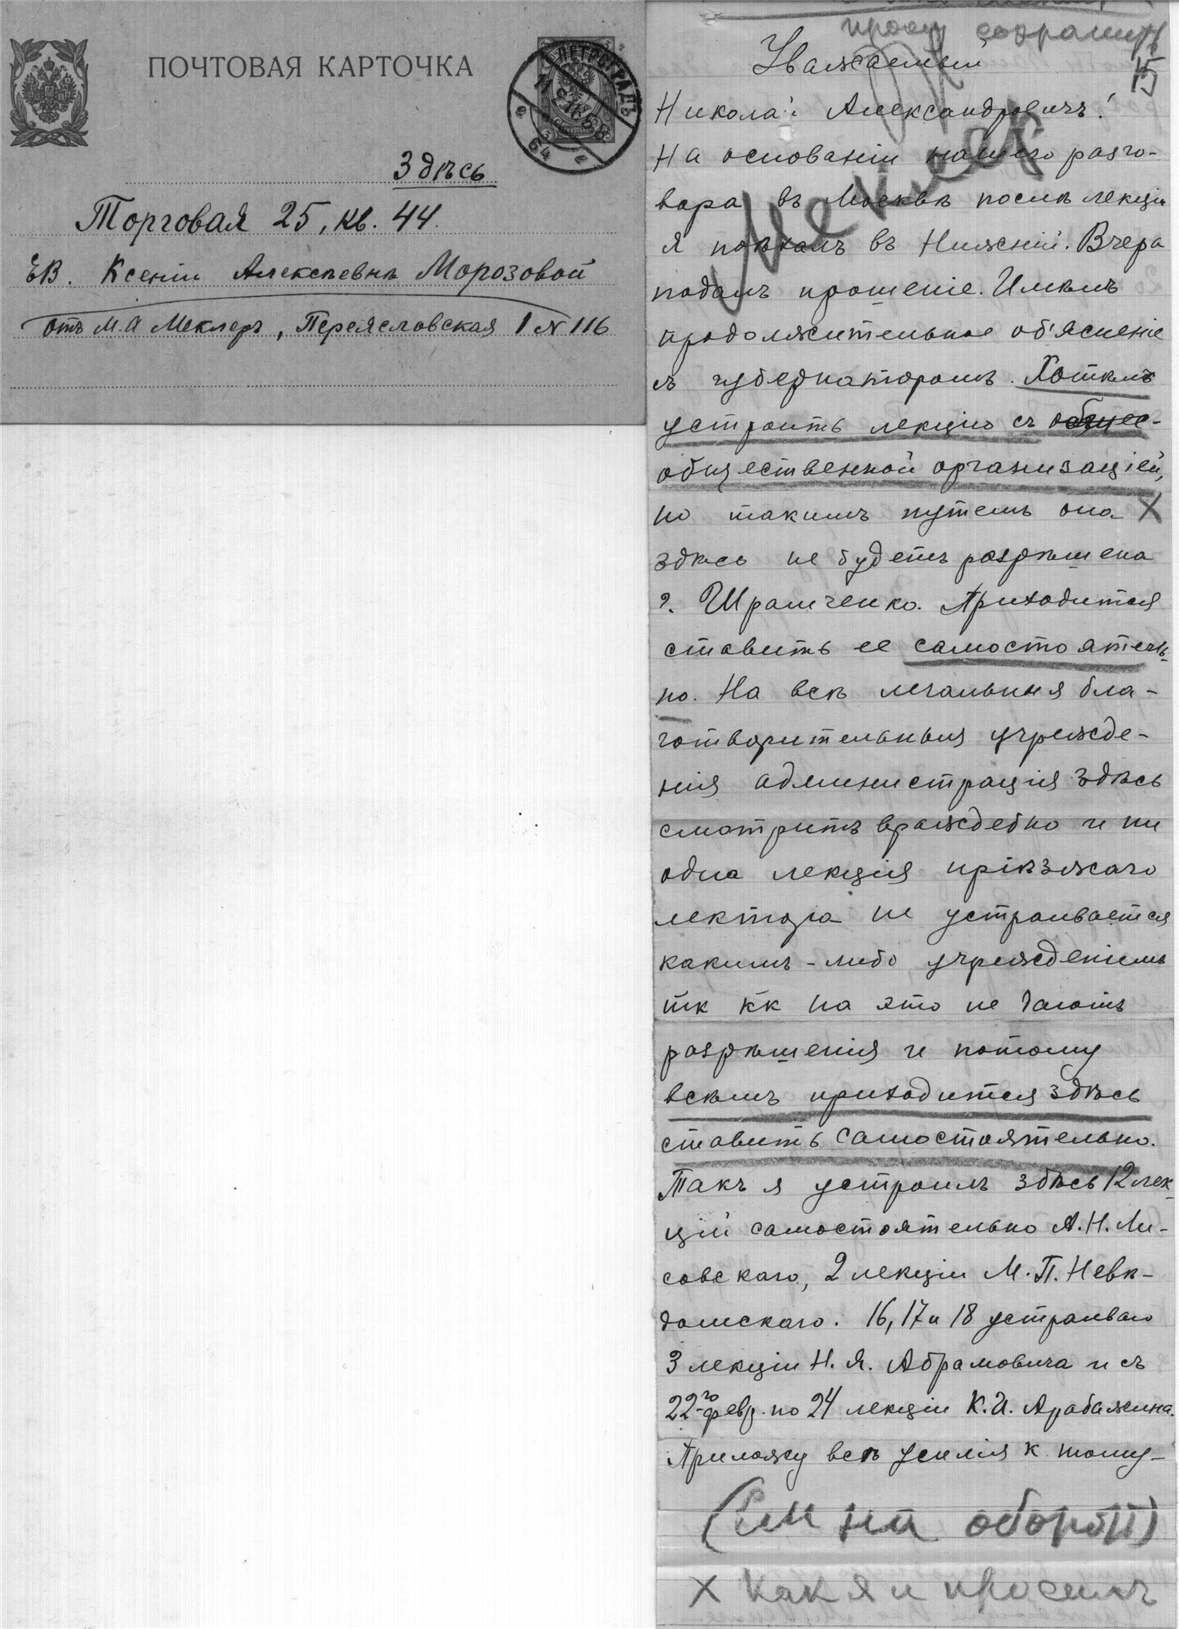 ПОЧТОВАЯ КАРТОЧКА
ПЕТРОГРАДЪ
Здѣсь
Торговая 25, кв. 44.
ЕВ. Ксеніи Алексѣевнѣ Морозовой
отъ М.А Меклеръ, Переяславская 1 № 116
прошу сохранить
15
Меклер
Уважаемый
Николай Александровичъ!
На основаніи нашего разго-
вора въ Москвѣ послѣ лекціи
я поѣхалъ въ Нижній. Вчера
подалъ прошеніе. Имѣлъ
продолжительное об'ясненіе
съ губернаторомъ. Хотѣлъ
устроить лекцію съ общес-
общественной организаціей,
но такимъ путемъ она X
здѣсь не будетъ разрѣшена
г. Шрамченко. Приходится
ставить ее самостоятель-
но. На всѣ легальныя бла-
готворительныя учрежде-
нія администрація здѣсь
смотритъ враждебно и ни
одна лекція пріѣзжаго
лектора не устраивается
какимъ-либо учрежденіемъ
тк кк на это не даютъ
разрѣшенія и потому
всѣмъ приходится здѣсь
ставить самостоятельно.
Такъ я устроилъ здѣсь 12 лек-
цій самостоятельно А.Н. Ли-
совскаго, 2 лекціи М.П. Невѣ-
домскаго. 16, 17 и 18 устраиваю
3 лекціи Н.Я. Абрамовича и съ
22-го февр. по 24 лекціи К.И. Арабажина.
Приложу всѣ усилія к тому-
(См на оборотѣ)
X Как я и просилъ